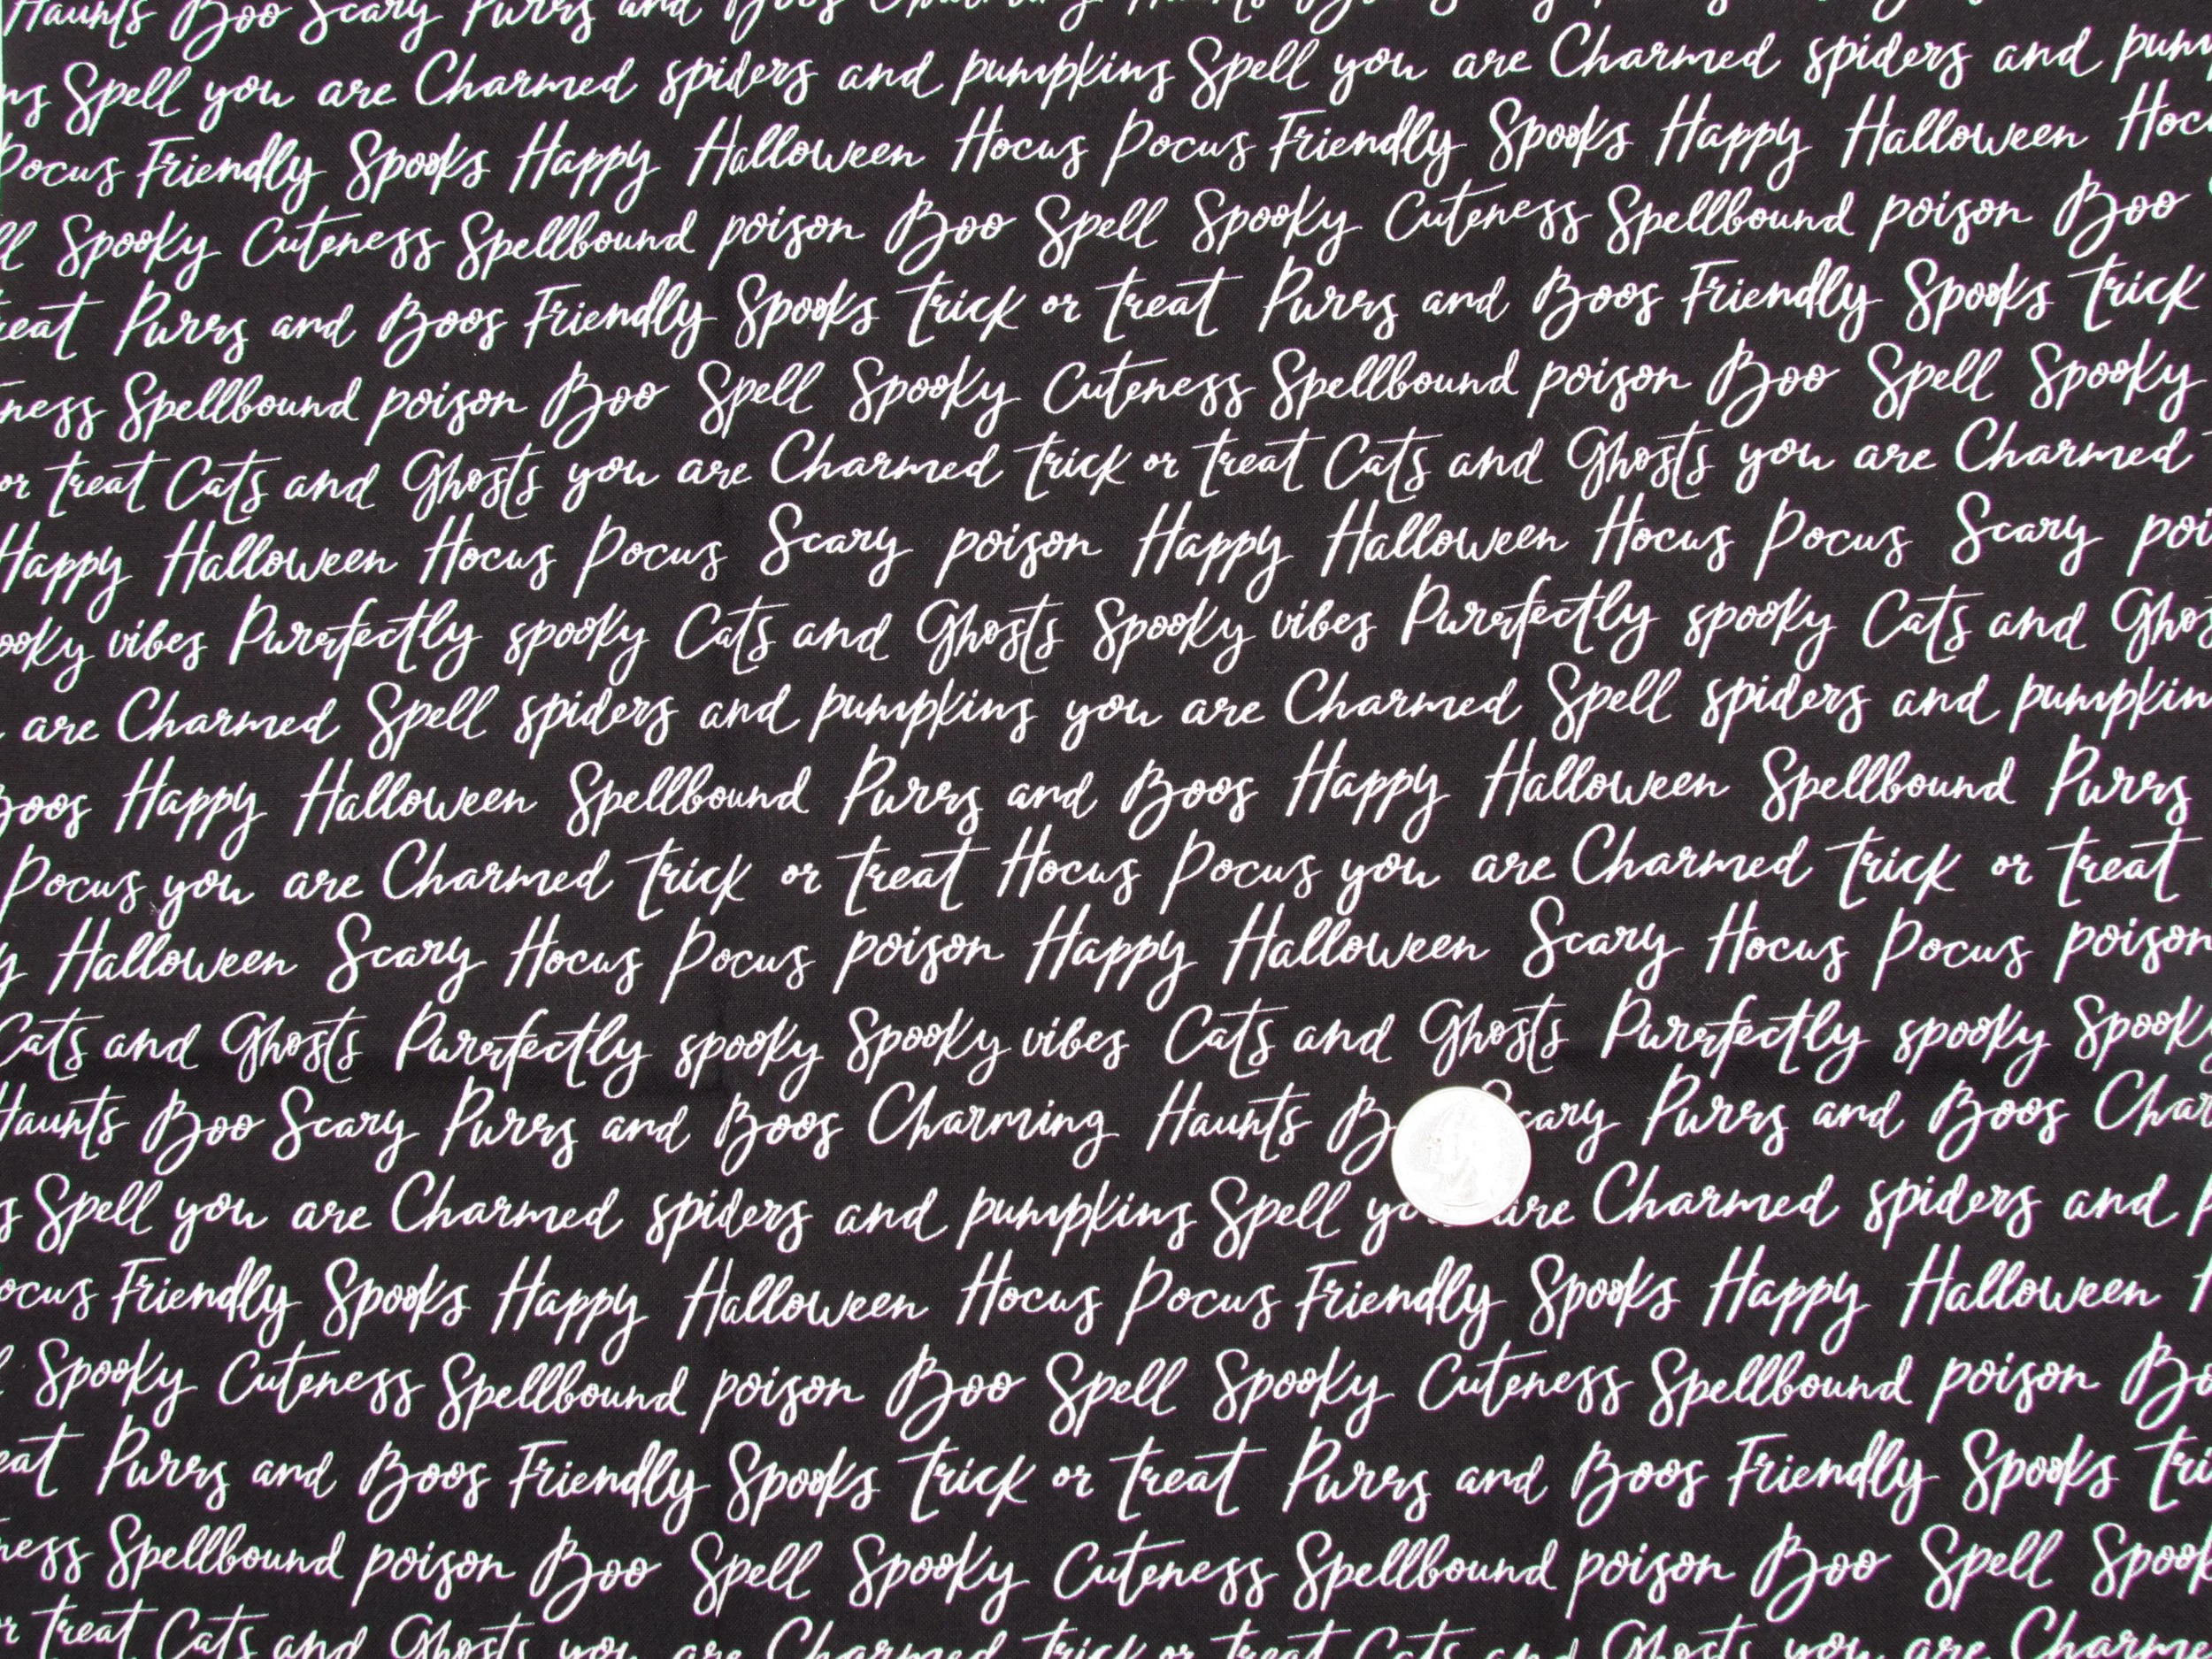 Haunts Boo Scary Purrs and Boos Charming Haunts
Spell you are Charmed spiders and pumpkins Spell you are Charmed spiders and pum
Pocus Friendly Spooks Happy Halloween Hocus Pocus Friendly Spooks Happy Halloween Hoc
ll Spooky Cuteness Spellbound poison Boo Spell Spooky Cuteness Spellbound poison Boo
eat Purrs and Boos Friendly Spooks trick or treat Purrs and Boos Friendly Spooks trick
ness Spellbound poison Boo Spell Spooky Cuteness Spellbound poison Boo Spell Spooky
or treat Cats and Ghosts you are Charmed trick or treat Cats and Ghosts you are Charmed
Happy Halloween Hocus Pocus Scary poison Happy Halloween Hocus Pocus Scary poi
ooky vibes Purrfectly spooky Cats and Ghosts Spooky vibes Purrfectly spooky Cats and Gho
are Charmed Spell spiders and pumpkins you are Charmed Spell spiders and pumpkin
Boos Happy Halloween Spellbound Purrs and Boos Happy Halloween Spellbound Purrs
Pocus you are Charmed trick or treat Hocus Pocus you are Charmed trick or treat
y Halloween Scary Hocus Pocus poison Happy Halloween Scary Hocus Pocus poison
Cats and Ghosts Purrfectly spooky Spooky vibes Cats and Ghosts Purrfectly spooky Spook
Haunts Boo Scary Purrs and Boos Charming Haunts B cary Purrs and Boos Cha
s Spell you are Charmed spiders and pumpkins Spell yo are Charmed spiders and p
ocus Friendly Spooks Happy Halloween Hocus Pocus Friendly Spooks Happy Halloween H
l Spooky Cuteness Spellbound poison Boo Spell Spooky Cuteness Spellbound poison Bo
eat Purrs and Boos Friendly Spooks trick or treat Purrs and Boos Friendly Spooks tri
ness Spellbound poison Boo Spell Spooky Cuteness Spellbound poison Boo Spell Spook
or treat Cats and Ghosts you are Charmed trick or treat Cats and Ghosts you are Charme